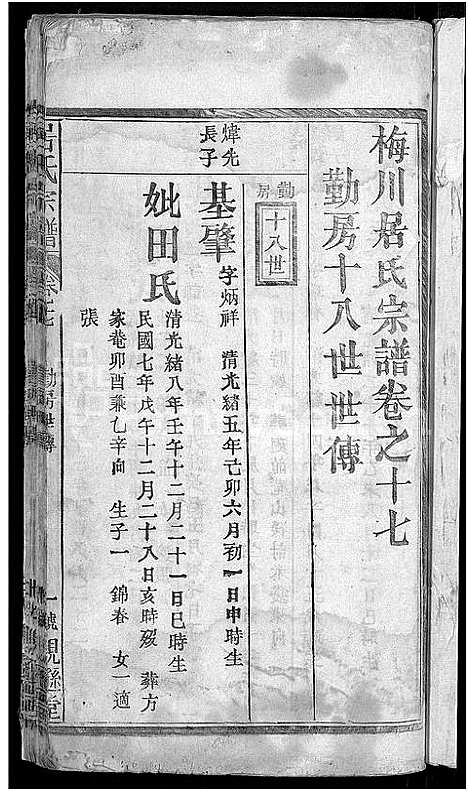 梅川居氏宗譜卷之十七
勤房十八世世傳
勤房
十八世
煒先長子
基肇
字炳祥　清光緒五年己卯六月初一日申時生
妣田氏
清光緒八年壬午十二月二十一日巳時生
民國七年戊午十二月二十八日亥時歿　葬方
家菴卯酉兼乙辛向　生子一　錦春　女一適
張
居氏宗譜
勤房世傳